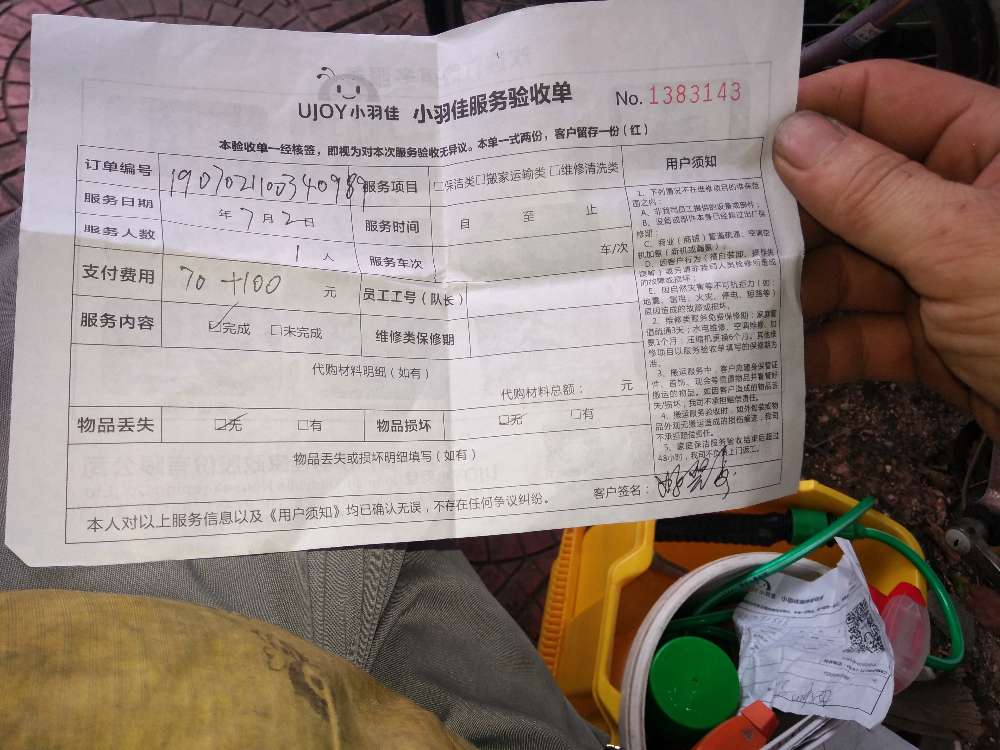 UJOY小羽佳 小羽佳服务验收单 No. 1383143
本验收单一经核签，即视为对本次服务验收无异议。本单一式两份，客户留存一份（红）
订单编号 190702110034098 服务项目 □保洁类□搬家运输类 □维修清洗类 用户须知
服务日期 年7月2日 服务时间 自 至 止
服务人数 1 人 服务车次 车/次
支付费用 70+100 元 员工工号（队长）
服务内容 ☑完成 □未完成 维修类保修期
代购材料明细（如有）
代购材料总额： 元
物品丢失 ☑无 □有 物品损坏 ☑无 □有
物品丢失或损坏明细填写（如有）
本人对以上服务信息以及《用户须知》均已确认无误，不存在任何争议纠纷。 客户签名：
1、下列情况不在维修项目的维保范
围之内：
A、非我司员工提供的设备或部件；
B、设备或部件本身已经超过出厂保
修期
C、商业（商铺）管道疏通、空调空
机加氟（新机或漏氟）；
的故障或损坏；
E、因自然灾害等不可抗拒力（如：
地震、雷电、火灾、停电、短路等）
原因造成的故障或损坏。
2、维修类服务免费保修期：家庭管
道疏通3天；水电维修、空调维修、加
氟1个月；压缩机更换6个月。其他维
修项目以服务验收单填写的保修期为
准。
3、搬运服务中，客户应随身保管证
件、首饰、现金等贵重物品并看管好
搬运的物品。如因客户造成的物品丢
失/损坏，我司可不承担赔偿责任。
4、搬运服务验收时，如外包装或物
品外观无搬运造成的损伤痕迹，我司
不承担赔偿责任。
5、家庭保洁服务验收结束后超过
48小时，我司不负责上门返工。